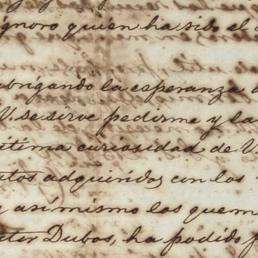 ignoro quien ha sido el a
abrigando la esperanza d
V. se sirve pedirme y la
ítima curiosidad de V.
tos adquiridos con los
asimismo los que m
tor Dubos, ha podido p